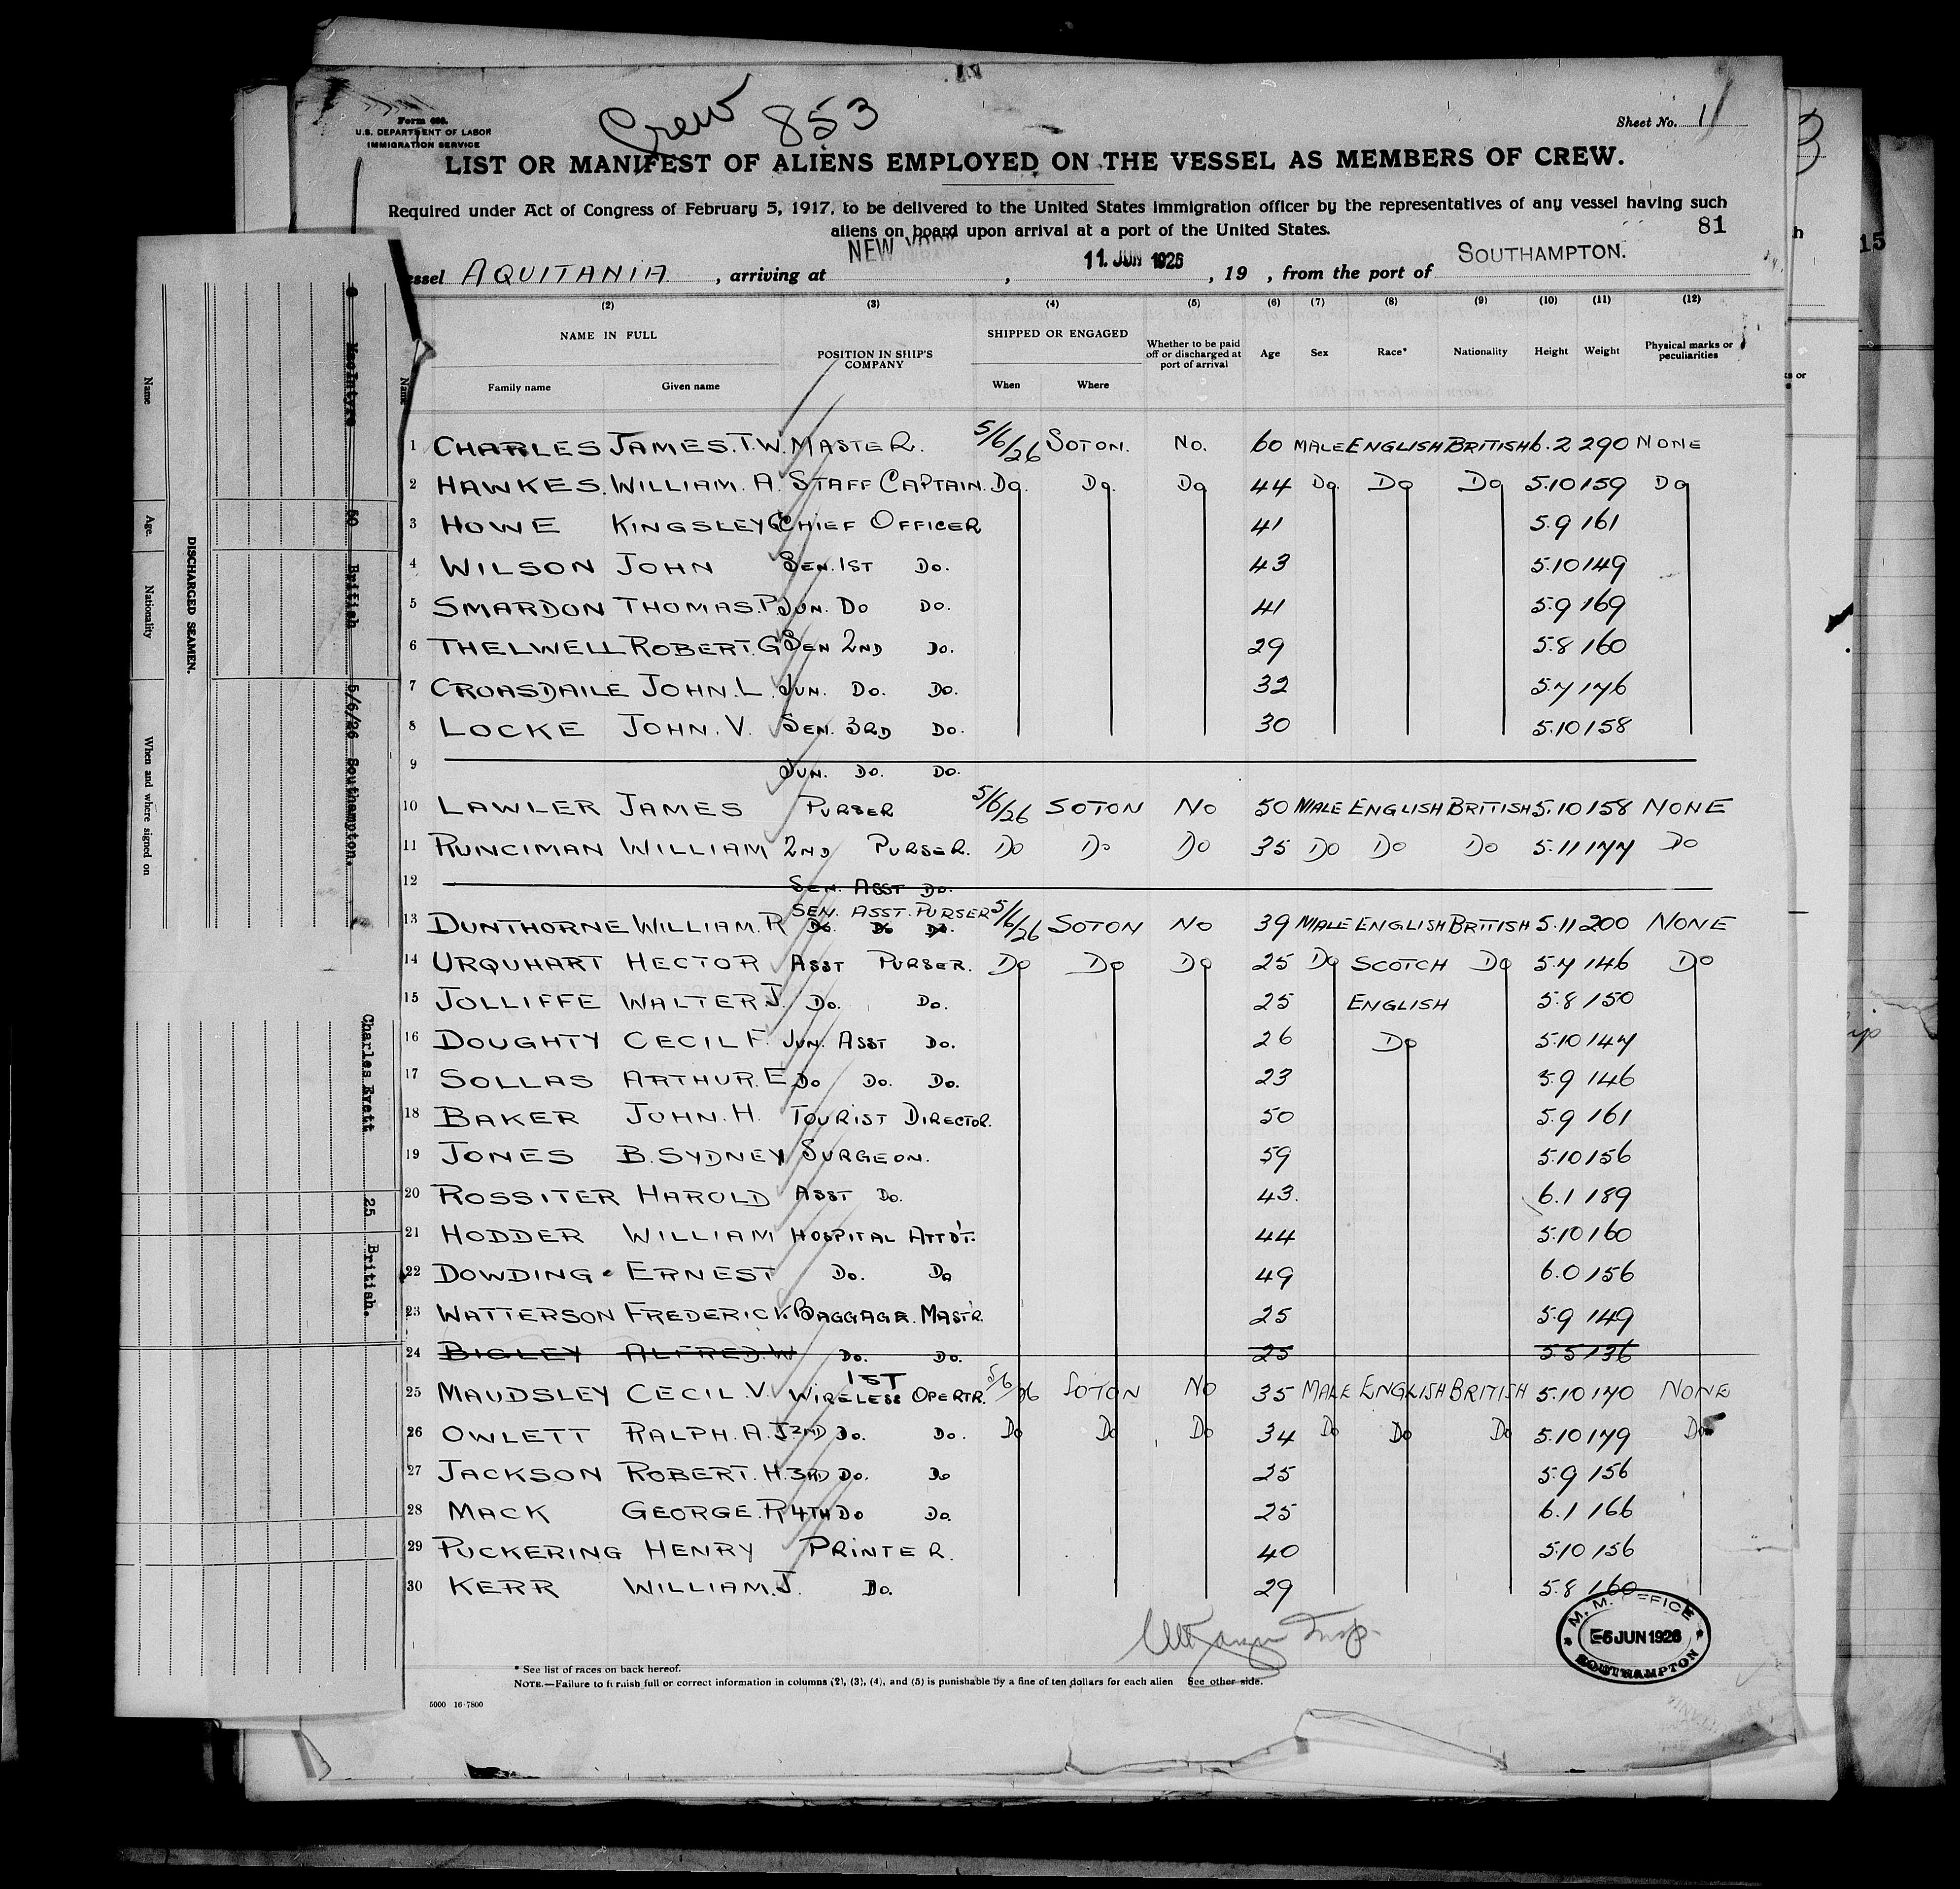 Crew 853
Form 680.
U.S. DEPARTMENT OF LABOR
IMMIGRATION SERVICE
Sheet No. 1
LIST OR MANIFEST OF ALIENS EMPLOYED ON THE VESSEL AS MEMBERS OF CREW.
Required under Act of Congress of February 5, 1917, to be delivered to the United States immigration officer by the representatives of any vessel having such
aliens on board upon arrival at a port of the United States.
81
ssel AQUITANIA, arriving at NEW YORK, 11 JUN 1926, 19 , from the port of SOUTHAMPTON.
(2) (3) (4) (5) (6) (7) (8) (9) (10) (11) (12)
NAME IN FULL POSITION IN SHIP'S COMPANY SHIPPED OR ENGAGED Whether to be paid off or discharged at port of arrival Age Sex Race* Nationality Height Weight Physical marks or peculiarities
Family name Given name When Where
1 CHARLES JAMES.T.W. MASTER. 5/6/26 SOTON. NO. 60 MALE ENGLISH BRITISH 6.2 290 NONE
2 HAWKES. WILLIAM. A. STAFF CAPTAIN. Do. Do. Do 44 Do. Do Do 5.10 159 Do
3 HOWE KINGSLEY CHIEF OFFICER 41 5.9 161
4 WILSON JOHN SEN. 1ST Do. 43 5.10 149
5 SMARDON THOMAS.P. JUN. Do Do. 41 5.9 169
6 THELWELL ROBERT.G SEN 2ND Do. 29 5.8 160
7 CROASDAILE JOHN.L. JUN. Do. Do. 32 5.7 176
8 LOCKE JOHN.V. SEN. 3RD Do. 30 5.10 158
9 JUN. Do. Do.
10 LAWLER JAMES PURSER 5/6/26 SOTON NO 50 MALE ENGLISH BRITISH 5.10 158 NONE
11 RUNCIMAN WILLIAM 2ND PURSER. Do Do Do 35 Do Do Do 5.11 177 Do
12 SEN. ASST Do.
SEN. ASST. PURSER
13 DUNTHORNE WILLIAM.R Do. Do Do. 5/6/26 SOTON NO 39 MALE ENGLISH BRITISH 5.11 200 NONE
14 URQUHART HECTOR ASST PURSER. Do Do Do 25 Do SCOTCH Do 5.7 146 Do
15 JOLLIFFE WALTER J. Do. Do. 25 ENGLISH 5.8 150
16 DOUGHTY CECIL F. JUN. ASST Do. 26 Do 5.10 147
17 SOLLAS ARTHUR.E. Do Do. Do. 23 5.9 146
18 BAKER JOHN.H. TOURIST DIRECTOR. 50 5.9 161
19 JONES B.SYDNEY SURGEON. 59 5.10 156
20 ROSSITER HAROLD ASST Do. 43. 6.1 189
21 HODDER WILLIAM HOSPITAL ATTD'T. 44 5.10 160
22 DOWDING ERNEST Do. Do 49 6.0 156
23 WATTERSON FREDERICK. BAGGAGE. MAST'R. 25 5.9 149
24 BIGLEY ALFRED.W Do. Do. 25 5.5 136
1ST
25 MAUDSLEY CECIL V. WIRELESS OPERTR. 5/6/26 SOTON NO 35 MALE ENGLISH BRITISH 5.10 140 NONE
26 OWLETT RALPH.A.J 2ND Do. Do. Do Do Do 34 Do Do Do 5.10 179 Do
27 JACKSON ROBERT.H. 3RD Do. Do 25 5.9 156
28 MACK GEORGE.R 4TH Do Do. 25 6.1 166
29 PUCKERING HENRY PRINTER. 40 5.10 156
30 KERR WILLIAM.J. Do. 29 5.8 160
Insp.
M. M. OFFICE
5 JUN 1926
SOUTHAMPTON
* See list of races on back hereof.
NOTE.—Failure to furnish full or correct information in columns (2), (3), (4), and (5) is punishable by a fine of ten dollars for each alien See other side.
5000 16-7800
DISCHARGED SEAMEN.
Name Age. Nationality When and where signed on
MacIntyre 50 British 5/6/26 Southampton.
Name
Charles Evett 25 British.
15